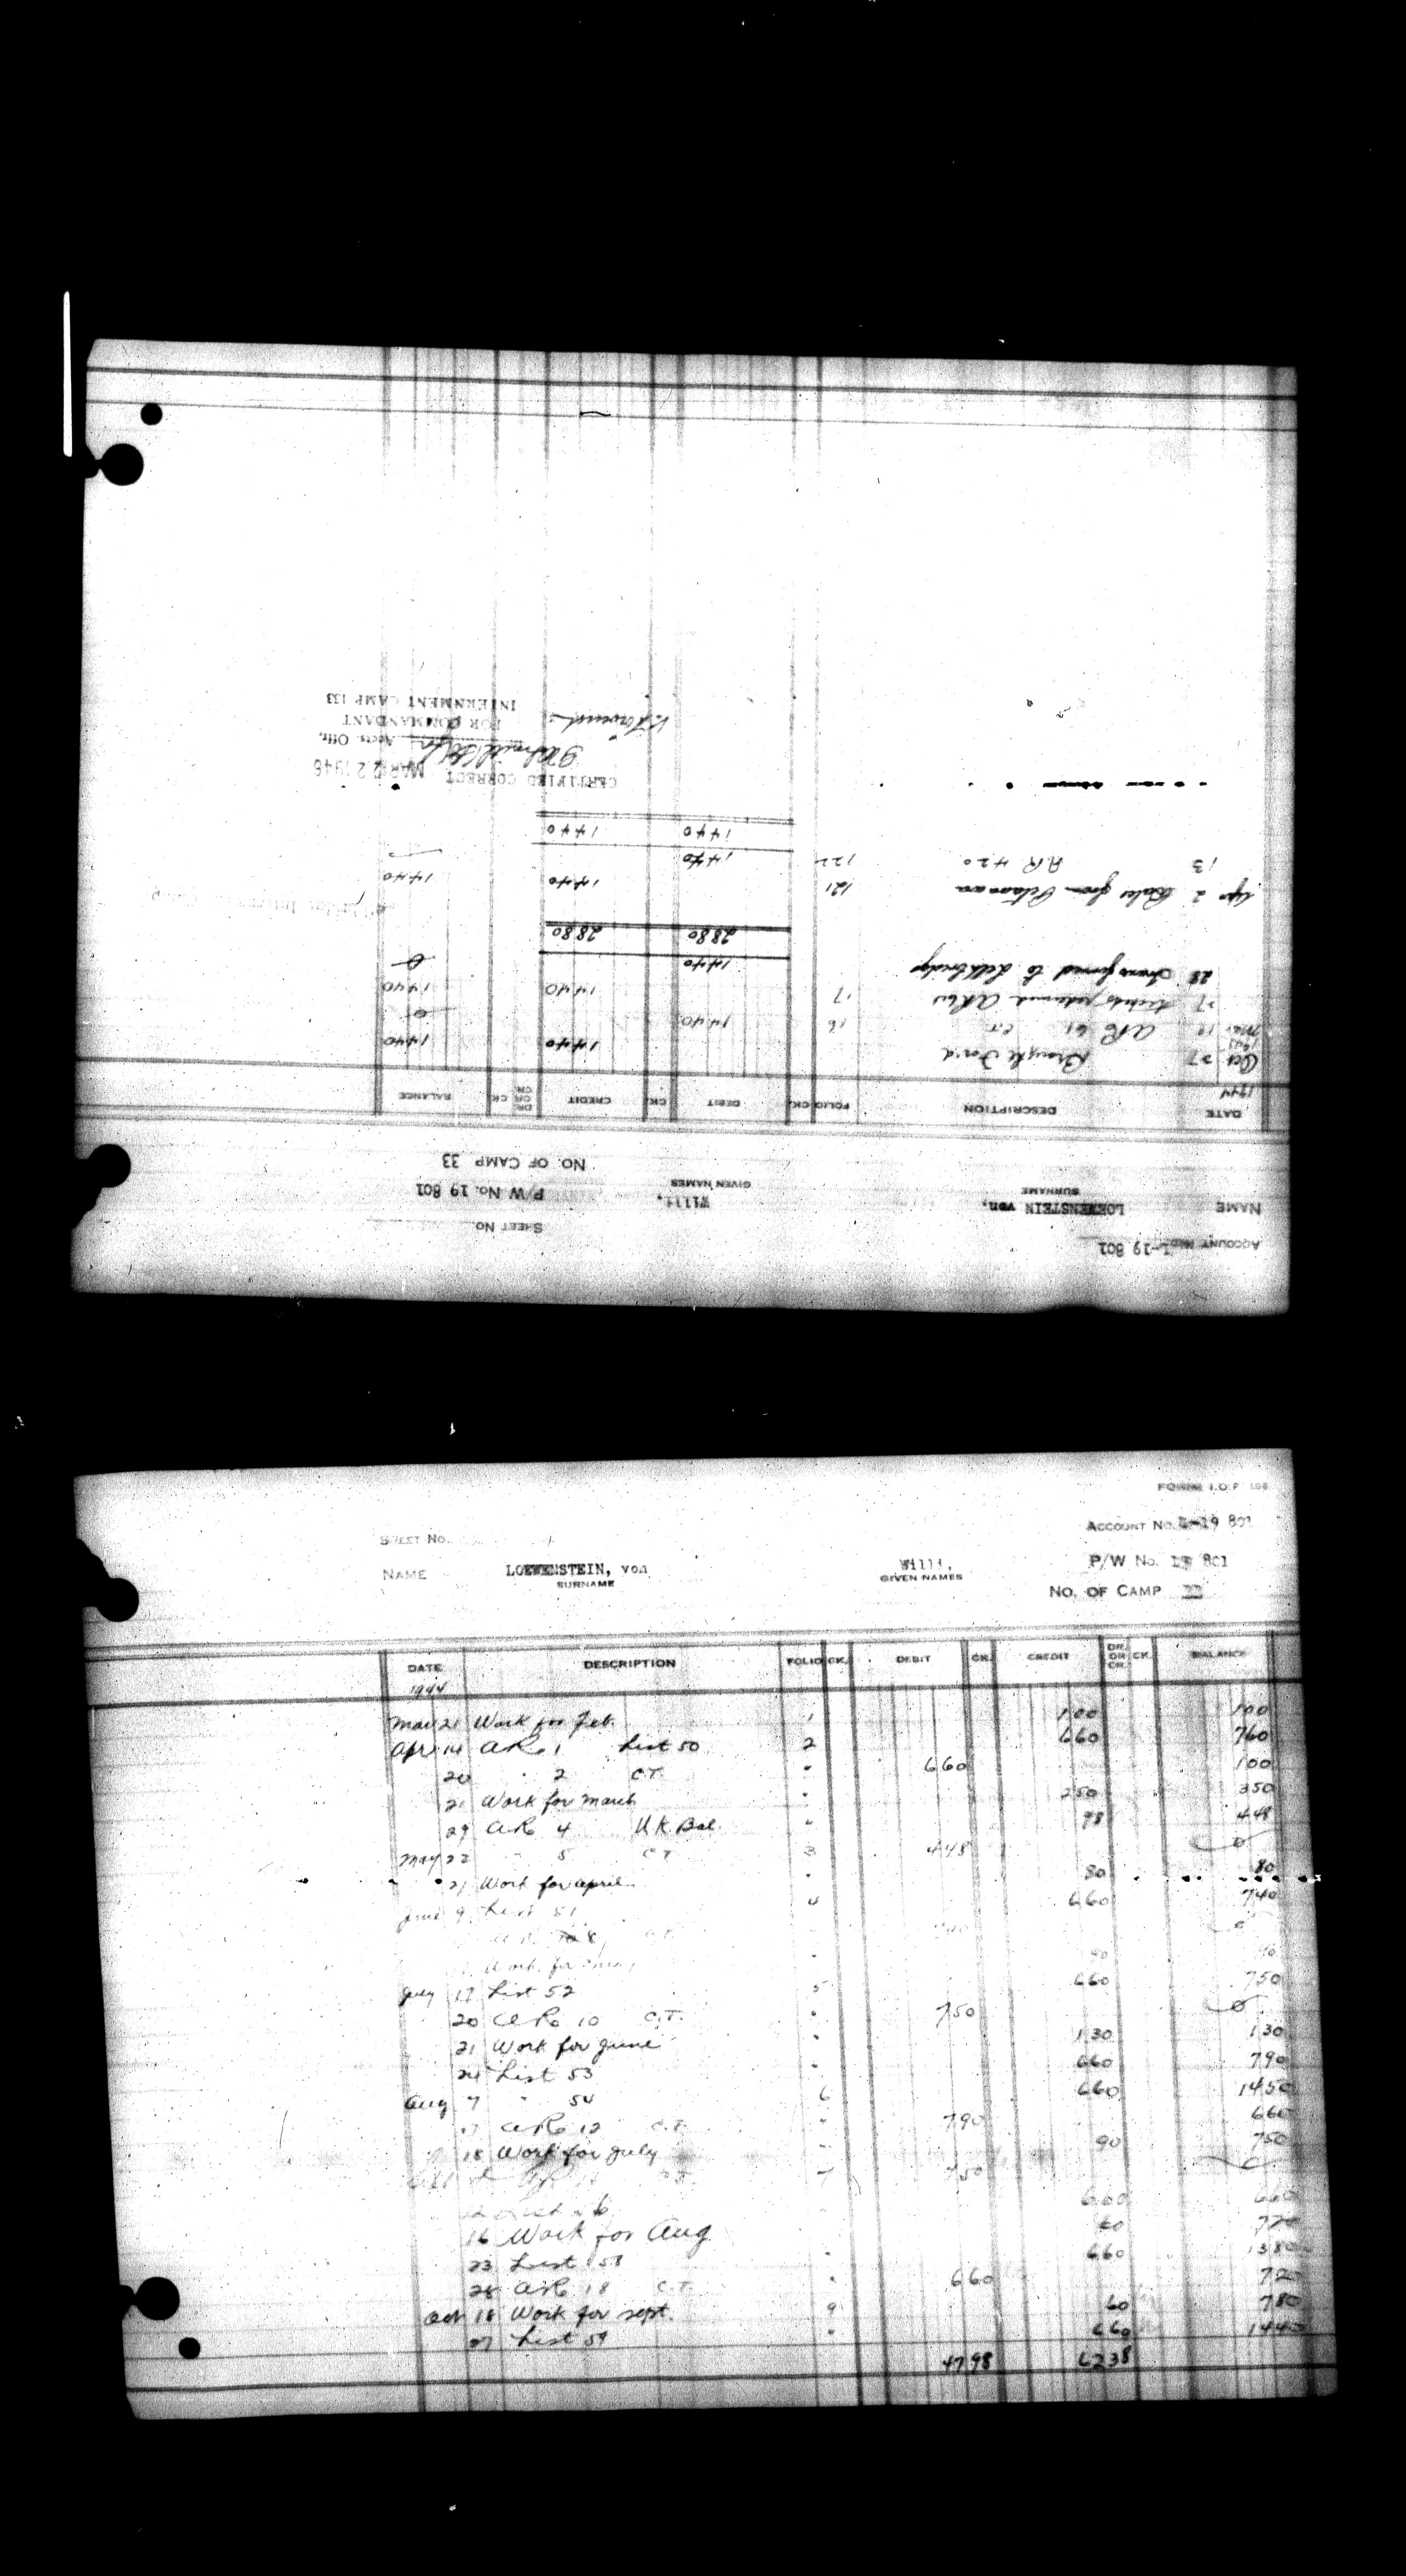 ACCOUNT No. L-19 801
SHEET No.
NAME LOEWENSTEIN von. Willi. P/W No. 19 801
SURNAME GIVEN NAMES
NO. OF CAMP 33
DATE DESCRIPTION FOLIO CK. DEBIT CK. CREDIT DR. OR CR. CK. BALANCE
1944
Oct 27 Brought Ford 1440 1440
Mar 19 AR 61 C.T. 16 1440 0
27 returned 17 1440 1440
28 Transferred to Lethbridge 1440 0
2880 2880
Apr 2 from 121 1440 1440
13 AR 420 122 1440
1440 1440
CERTIFIED CORRECT MAR 22 1946
Accts. Offr.
FOR COMMANDANT
INTERNMENT CAMP 133
FORM I.O.P.
SHEET No. ACCOUNT No. L-19 801
NAME LOEWENSTEIN, von Willi. P/W No. 19 801
SURNAME GIVEN NAMES
NO. OF CAMP 33
DATE DESCRIPTION FOLIO CK. DEBIT CK. CREDIT DR. OR CR. CK. BALANCE
1944
Mar 21 Work for Feb. 1 100 100
Apr 14 AR 1 List 50 2 660 760
20 " 2 C.T. " 660 100
21 Work for March " 250 350
29 AR 4 U.K. Bal. " 98 448
May 22 " 5 C.T. 3 448 0
21 Work for April " 80 80
June 9 List 51 4 660 740
Work for May
July 17 List 52 5 660 750
20 AR 10 C.T. " 750 0
21 Work for June " 130 130
24 List 53 " 660 790
Aug 7 " 54 6 660 1450
17 AR 12 C.T. " 790 660
18 Work for July " 90 750
C.T. 7 750
660 660
16 Work for Aug 60 720
23 List 58 " 660 1380
28 AR 18 C.T. " 660 720
Oct 18 Work for Sept. 9 60 780
27 List 59 " 660 1440
4798 6238